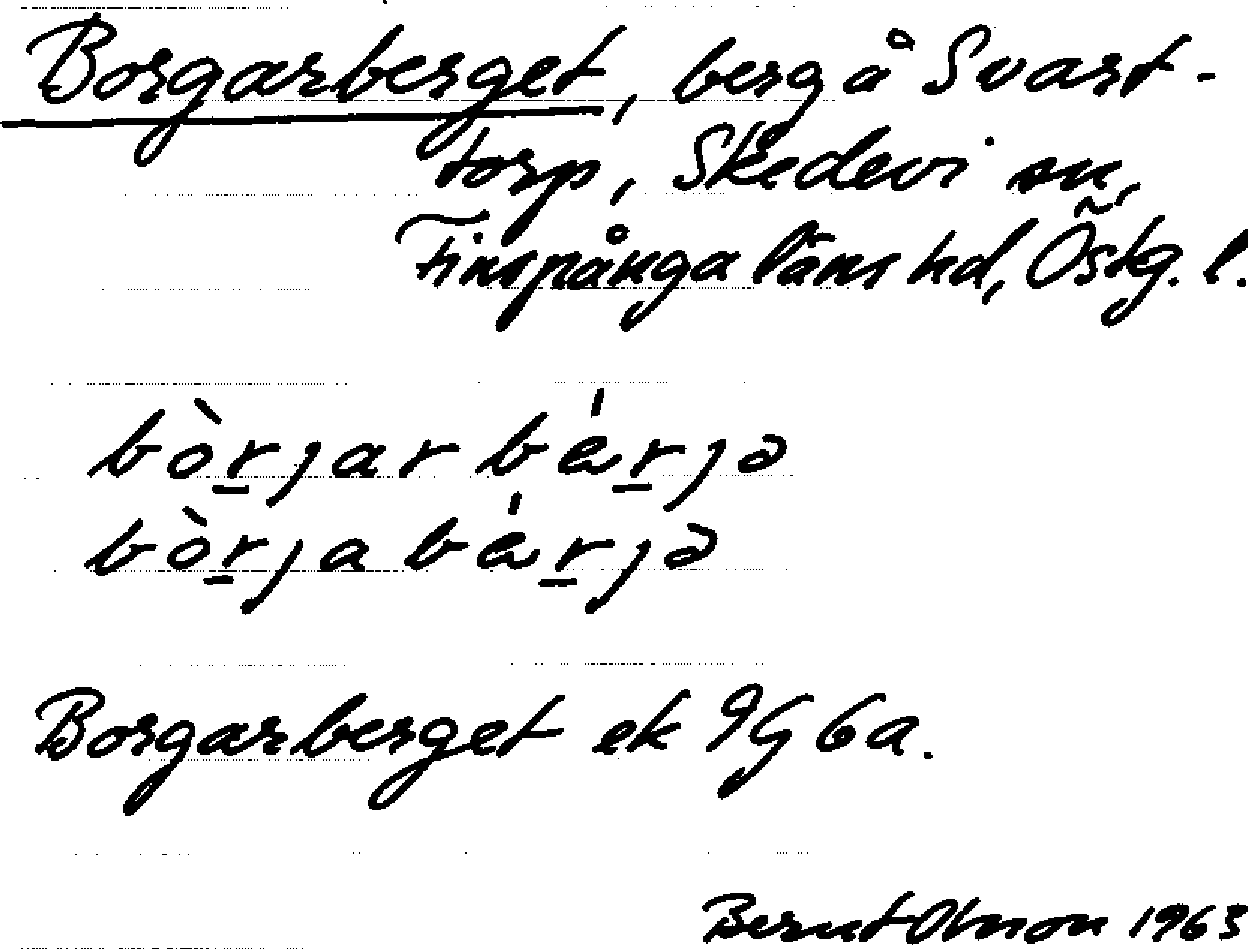 Borgarberget, berg å Svart-
torp, Skedevi sn,
Finspånga läns hd, Östg. l.
bòr̲jar bä́r̲jə
bòr̲ja bä́r̲jə
Borgarberget ek 9G 6a.
Bernt Olsson 1963